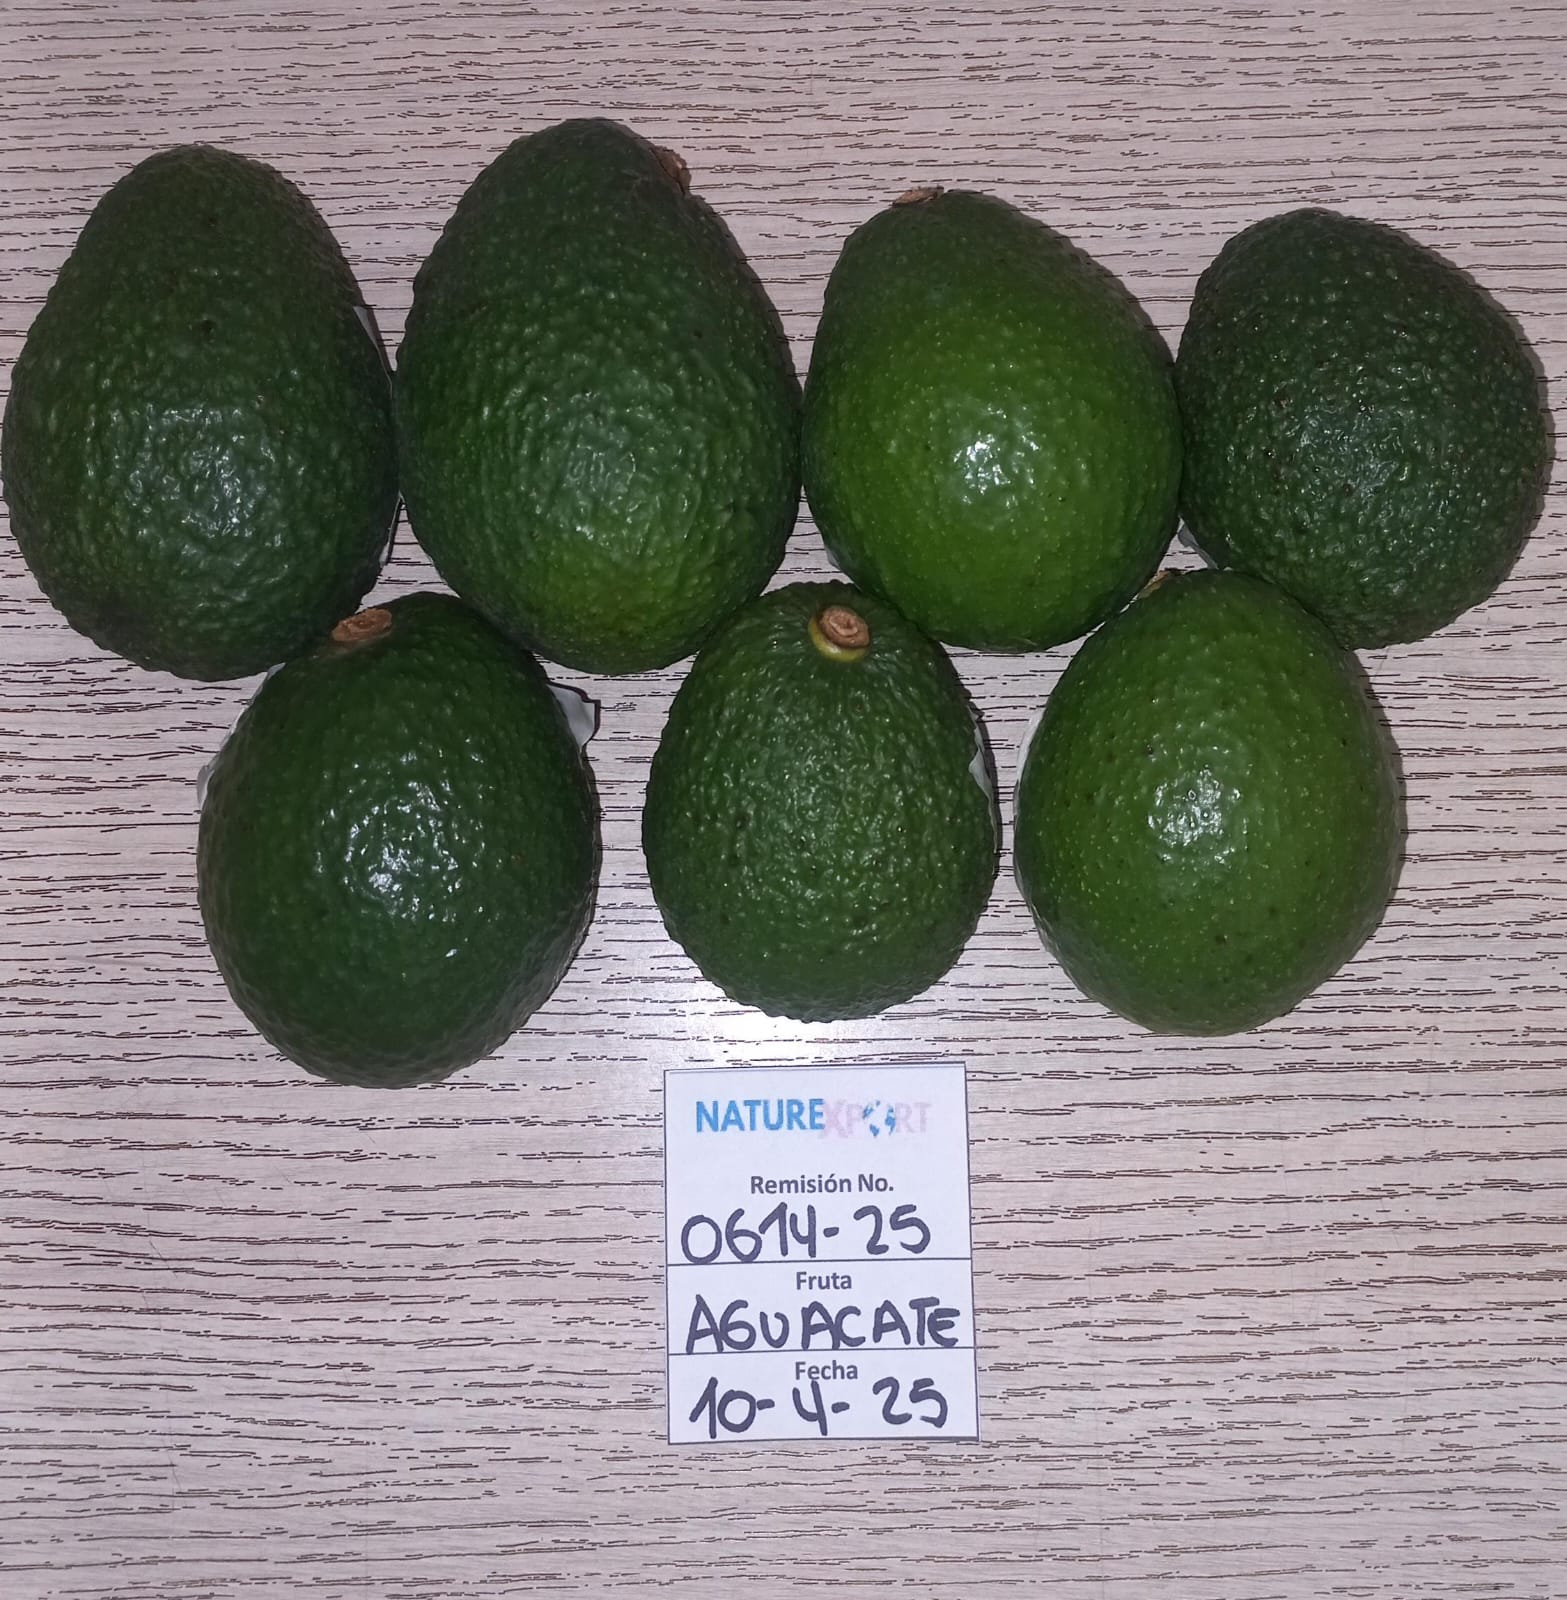 NATUREXPORT
Remisión No.
0614-25
Fruta
AGUACATE
Fecha
10-4-25